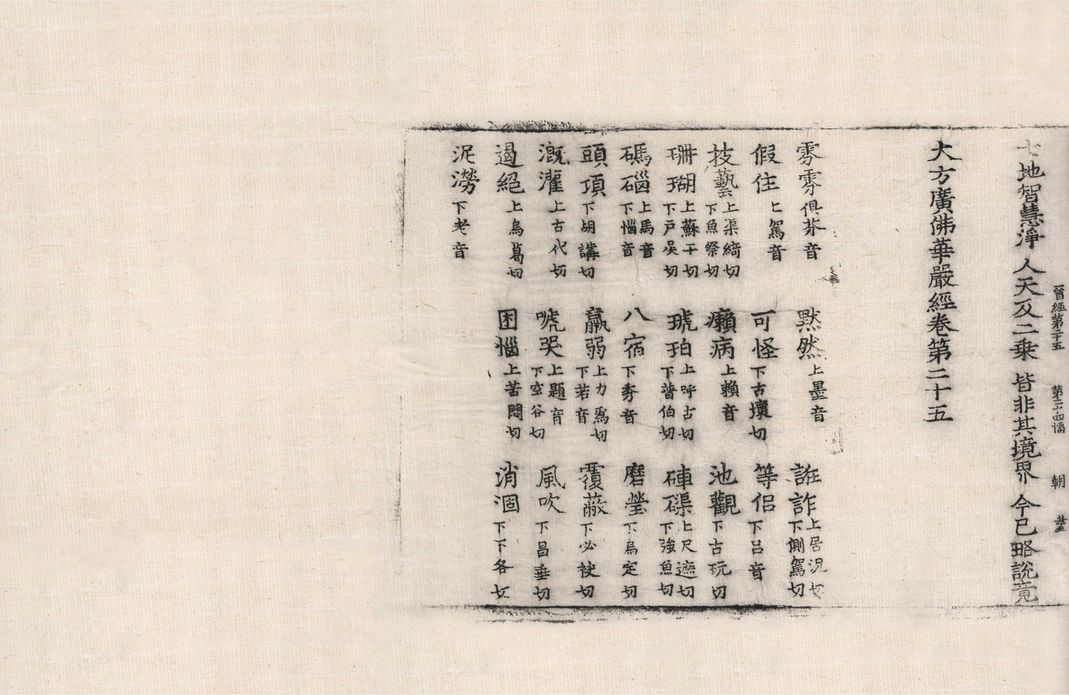 七地智慧淨 人天及二乗 皆非其境界 今已略說竟
晉經第二十五 第二十四幅 朝
大方廣佛華嚴經卷第二十五
雰雰俱芬音 黙然上墨音 誑詐上居況切下側駕切
假住上駕音 可怪下古壞切 等侶下呂音
技藝上渠綺切下魚祭切 癩病上賴音 池觀下古玩切
珊瑚上蘇干切下戸吳切 琥珀上呼古切下普伯切 硨磲上尺遮切下強魚切
碼碯上馬音下惱音 八宿下秀音 磨瑩下烏定切
頭項下胡講切 羸弱上力爲切下若音 覆蔽下必袂切
漑灌上古代切 嗁哭上題音下空谷切 風吹下昌垂切
遏絕上烏葛切 困惱上苦悶切 消涸下下各切
泥澇下老音